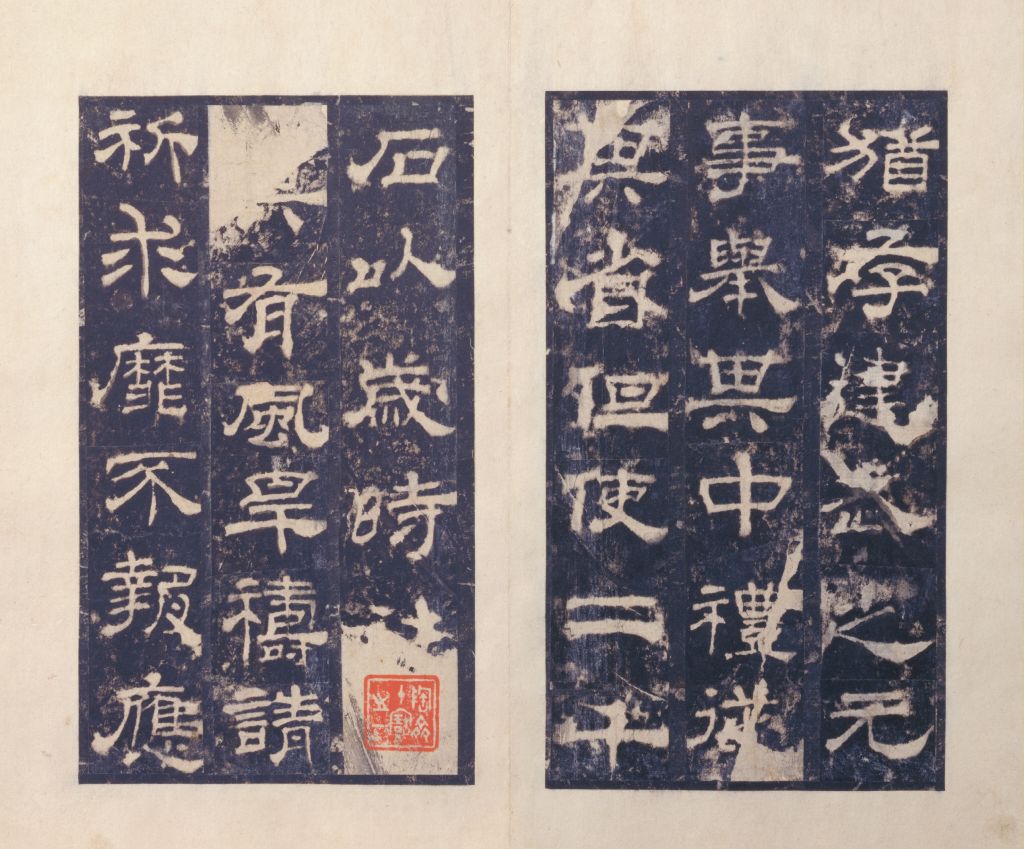 猶存建武之元
事舉其中禮從
其省但使二千
石以歲時
有風旱禱請
祈求靡不報應